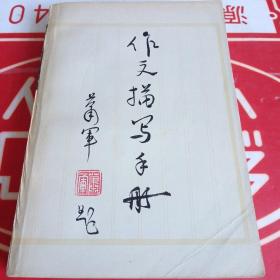 作文描写手册
萧军
题
04